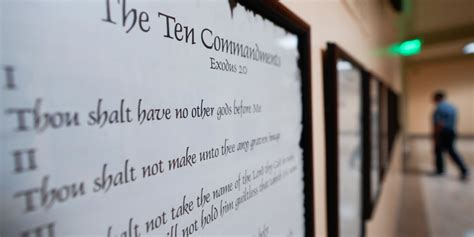 The Ten Commandments
Exodus 20
I
Thou shalt have no other gods before Me.
II
Thou shalt not make unto thee any graven image
III
Thou shalt not take the name of the Lord thy God in vain
will not hold him guiltless that